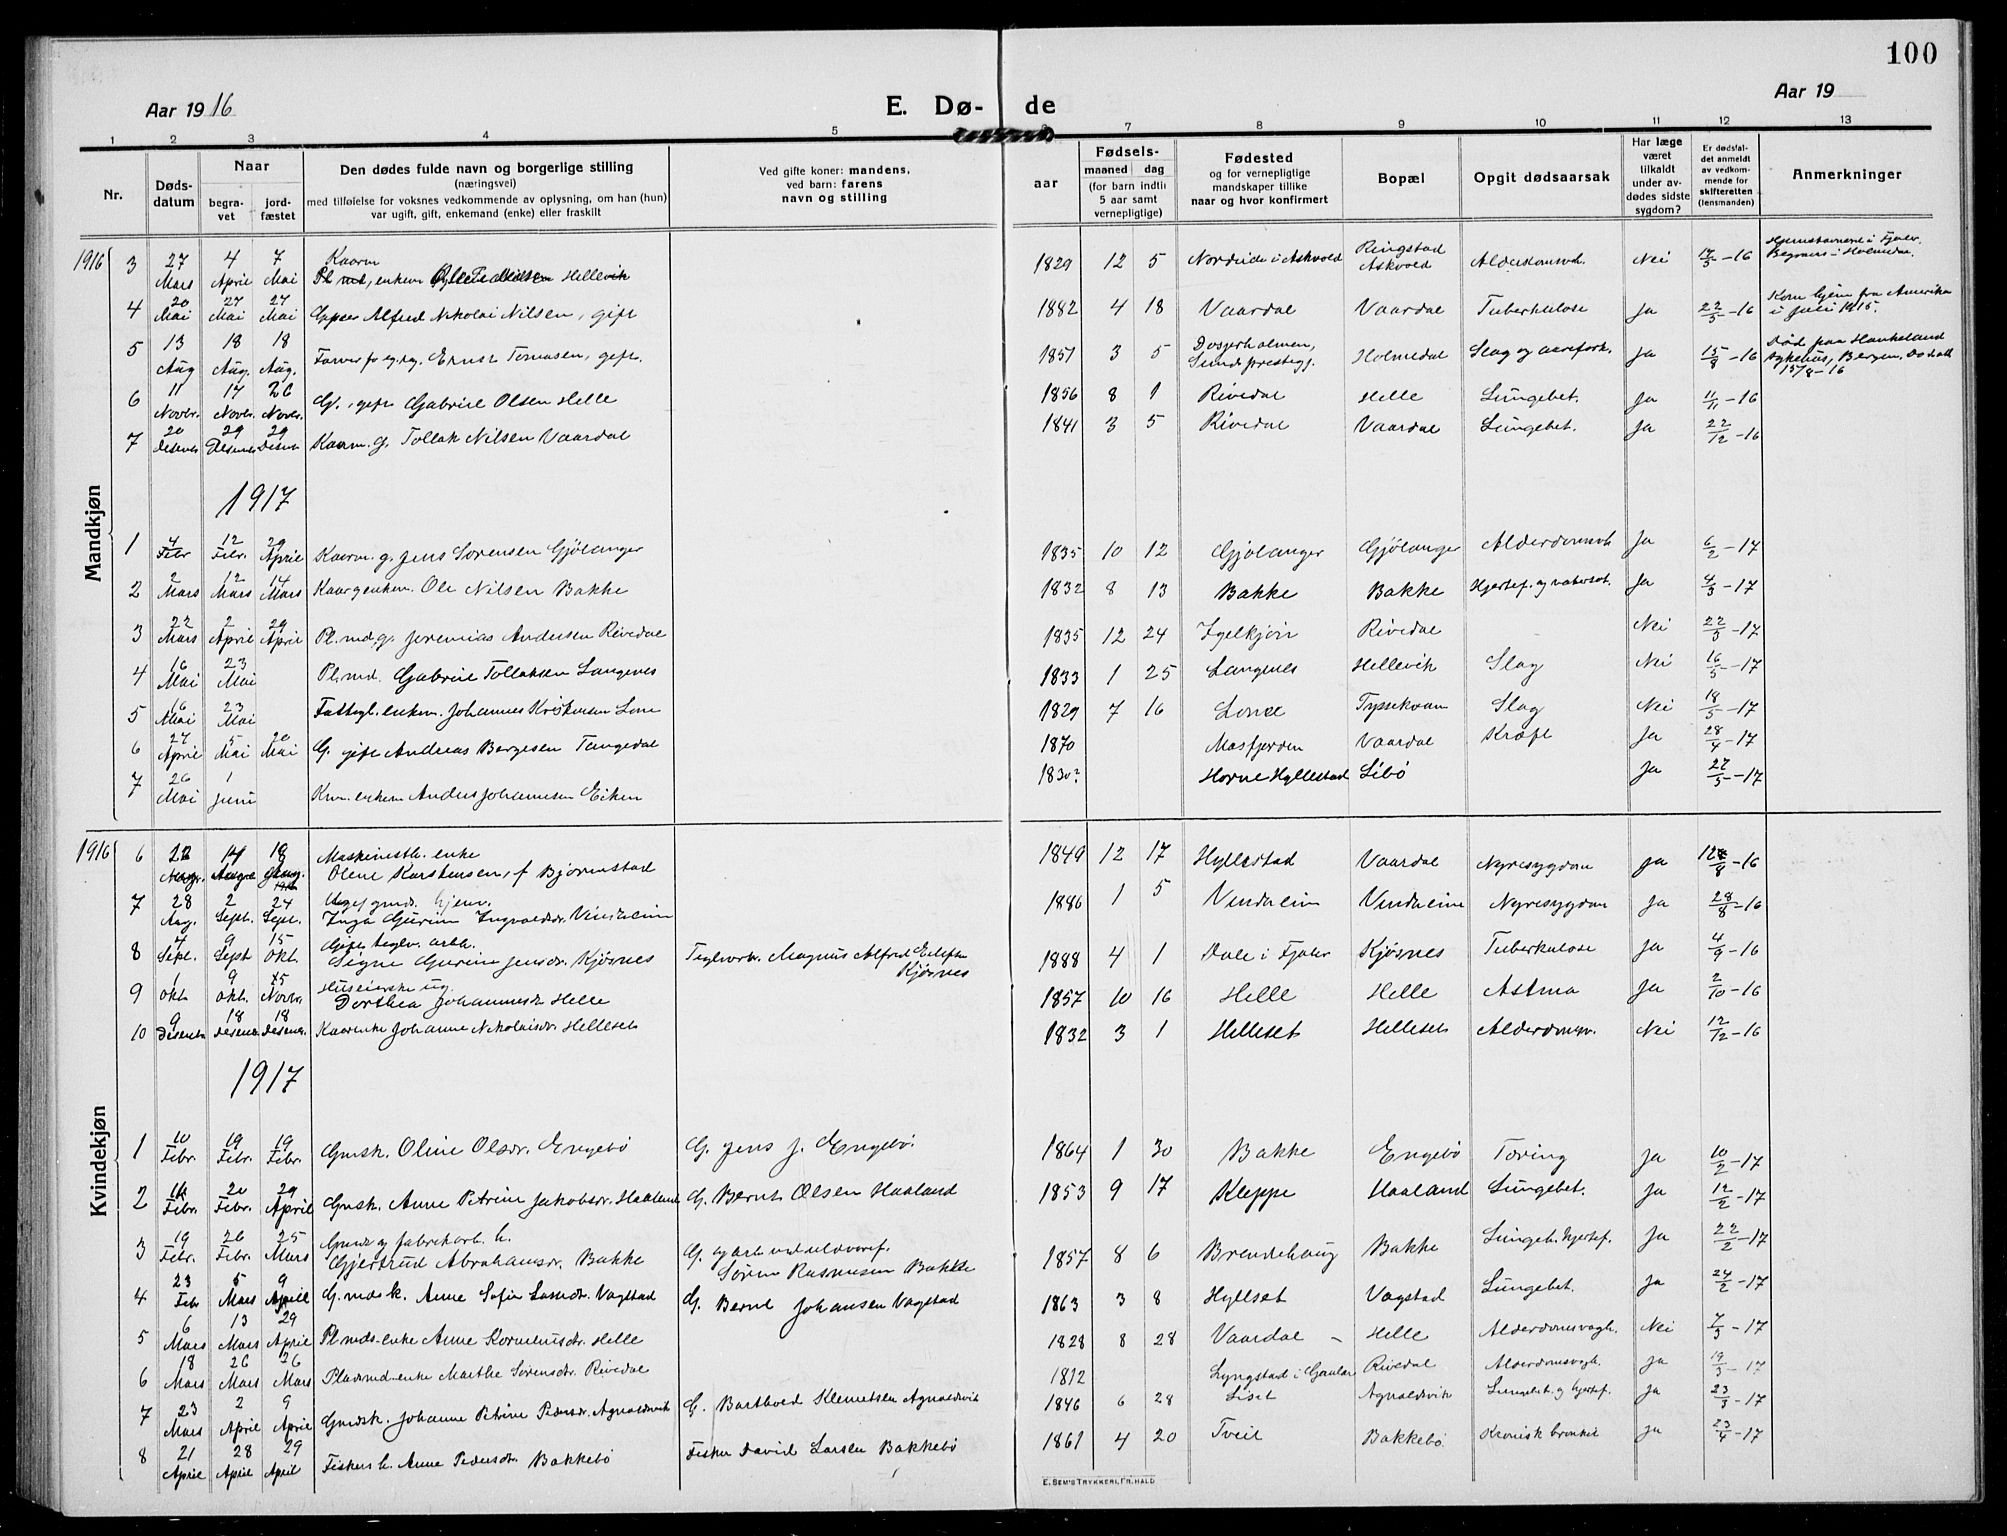 100
Aar 1916
E. Dø- de
Aar 19
1 2 3 4 5 6 7 8 9 10 11 12 13
Nr.
Døds-
datum
Naar
begra-
vet
jord-
fæstet
Den dødes fulde navn og borgerlige stilling
(næringsvei)
med tilføielse for voksnes vedkommende av oplysning, om han (hun)
var ugift, gift, enkemand (enke) eller fraskilt
Ved gifte koner: mandens,
ved barn: farens
navn og stilling
Fødsels-
aar
maaned dag
(for barn indtil
5 aar samt
vernepligtige)
Fødested
og for vernepligtige
mandskaper tillike
naar og hvor konfirmert
Bopæl
Opgit dødsaarsak
Har læge
været
tilkaldt
under av-
dødes sidste
sygdom?
Er dødsfal-
det anmeldt
av vedkom-
mende for
skifteretten
(lensmanden)
Anmerkninger
Mandkjøn
1916 3 27 Mars 4 April 7 Mai Kaarm Pl md, enkem Hellevik 1829 12 5 Nordeide i Askvold Ringstad Askvold Alderdomsvd. Nei 17/5-16 Begraves i Holmedal.
4 20 Mai 27 Mai 27 Mai Alfred Nikolai Nilsen, gift 1882 4 18 Vaardal Vaardal Tuberkulose Ja 22/5-16 Kom hjem fra Amerika i juli 1915.
5 13 Aug 18 Aug. 18 Aug. Farver fo eg. Ernst Tomasen, gift. 1851 3 5 Dosjerholmen, Sunds prestegj. Holmedal Slag og aarefork. Ja 15/8-16 Død paa Haukeland sykehus, Bergen. 15/8-16
6 11 Novbr. 17 Novbr. 26 Novbr. G., gift Gabriel Olsen Helle 1856 8 1 Rivedal Helle Lungebet. Ja 11/11-16
7 20 Desember 29 Desember 29 Desbr Kaarm. g. Tollak Nilsen Vaardal 1841 3 5 Rivedal Vaardal Lungebet. Ja 22/12-16
1917
1 4 Febr 12 Febr. 29 April Kaarm. g. Jens Sørensen Gjølanger 1835 10 12 Gjølanger Gjølanger Alderdomsvh Ja 6/2-17
2 2 Mars 12 Mars 14 Mars Kaargenkem. Ole Nilsen Bakke 1832 8 13 Bakke Bakke Hjertef. og vatersot. Ja 4/3-17
3 22 Mars 2 April 29 April Pl. md. g. Jeremias Andersen Rivedal 1835 12 24 Igelkjön Rivedal Nei 22/3-17
4 16 Mai 23 Mai Pl. md. Gabriel Tollaksen Langenes 1833 1 25 Langenes Hellevik Slag Nei 16/5-17
5 16 Mai 23 Mai Fattigl. enkem. Johannes Kristensen Lone 1829 7 16 Lone Tyssekvam Slag Nei 18/5-17
6 27 April 5 Mai 20 Mai G. gift Andreas Børgesen Tangedal 1870 Masfjorden Vaardal Kræft Ja 28/4-17
7 26 Mai 1 juni Krm. enkem Anders Johannesen Eiken 1830? Horne Hyllestad Libö Ja 27/5-17
Kvindekjøn
1916 6 Aug. 14 Aug. 18 Aug. Maskinisth. enke Oline Karstensen, f Bjørnstad 1849 12 17 Hyllestad Vaardal Nyresygdom Ja 12/8-16
7 28 Aug. 2 Sept. 24 Sept. Ugift gmd. hjem. Inga Gurine Ingvaldsdr. Vindaleim 1886 1 5 Vindaleim Vindaleim Nyresygdom Ja 28/8-16
8 4 Sept. 9 Sept 15 Okt. Gift teglv. arb. Signe Gurine Jensdr. Kjøsnes Teglverk. Magnus Alfred Eilefsen Kjøsnes 1888 4 1 Dale i Fjaler Kjøsnes Tuberkulose Ja 4/9-16
9 1 Okt. 9 Okt. 25 Novbr. Huseierske ug. Dorthea Johannesd. Helle 1857 10 16 Helle Helle Astma Ja 2/10-16
10 9 Desemb. 18 Desemb. 18 Desemb. Kaarenke Johanne Nikolaisdr. Helleset 1832 3 1 Helleset Helleset Alderdomsv. Nei 12/12-16
1917
1 10 Febr. 19 Febr. 19 Febr. Gmsk. Oline Olsdr. Engebö G. Jens J. Engebö. 1864 1 30 Bakke Engebö Tæring Ja 10/2-17
2 Febr. 20 Febr. 29 April Gmsk. Anne Petrine Jakobsdr. Haaland G. Bernt Olsen Haaland 1853 9 17 Kleppe Haaland Lungebet. Ja 12/2-17
3 19 Febr. 26 Febr. 25 Mars Gmds og fabrikarb. h. Gjertrud Abrahamsdr. Bakke G. og arb ved uldvaref. Søren Rasmusen Bakke 1857 8 6 Brendehaug Bakke Lungeb. hjertef. Ja 22/2-17
4 23 Febr 5 Mars 9 April G. mdsk. Anne Sofie Larsdr. Vagstad G. Bernt Johansen Vagstad 1863 3 8 Hyllset Vagstad Lungebet. Ja 24/2-17
5 6 Mars 13 Mars 29 April Pl mds-enke Anne Korneliusdr. Helle 1828 8 28 Vaardal - Helle Alderdomsvagh. Nei 7/3-17
6 18 Mars 26 Mars 26 Mars Pladsmd-enke Marthe Sørensdr. Rivedal 1812 Lyngstad i Gaular Rivedal Alderdomsvagh. Ja 19/3-17
7 23 Mars 2 April 9 April Gmdsk. Johanne Petrine Pedersdr. Agnaldsvik G. Barthold Klemetsen Agnaldsvik 1846 6 28 Liset Agnaldsvik Lungebet. og hjertef. Ja 23/3-17
8 21 April 28 April 29 April Fiskers h. Anne Pedersdr. Bakkebö Fisker David Larsen Bakkebö 1861 4 20 Tveit Bakkebö Kronisk bronkit Ja 23/4-17
E. SEM'S TRYKKERI, FR. HALD